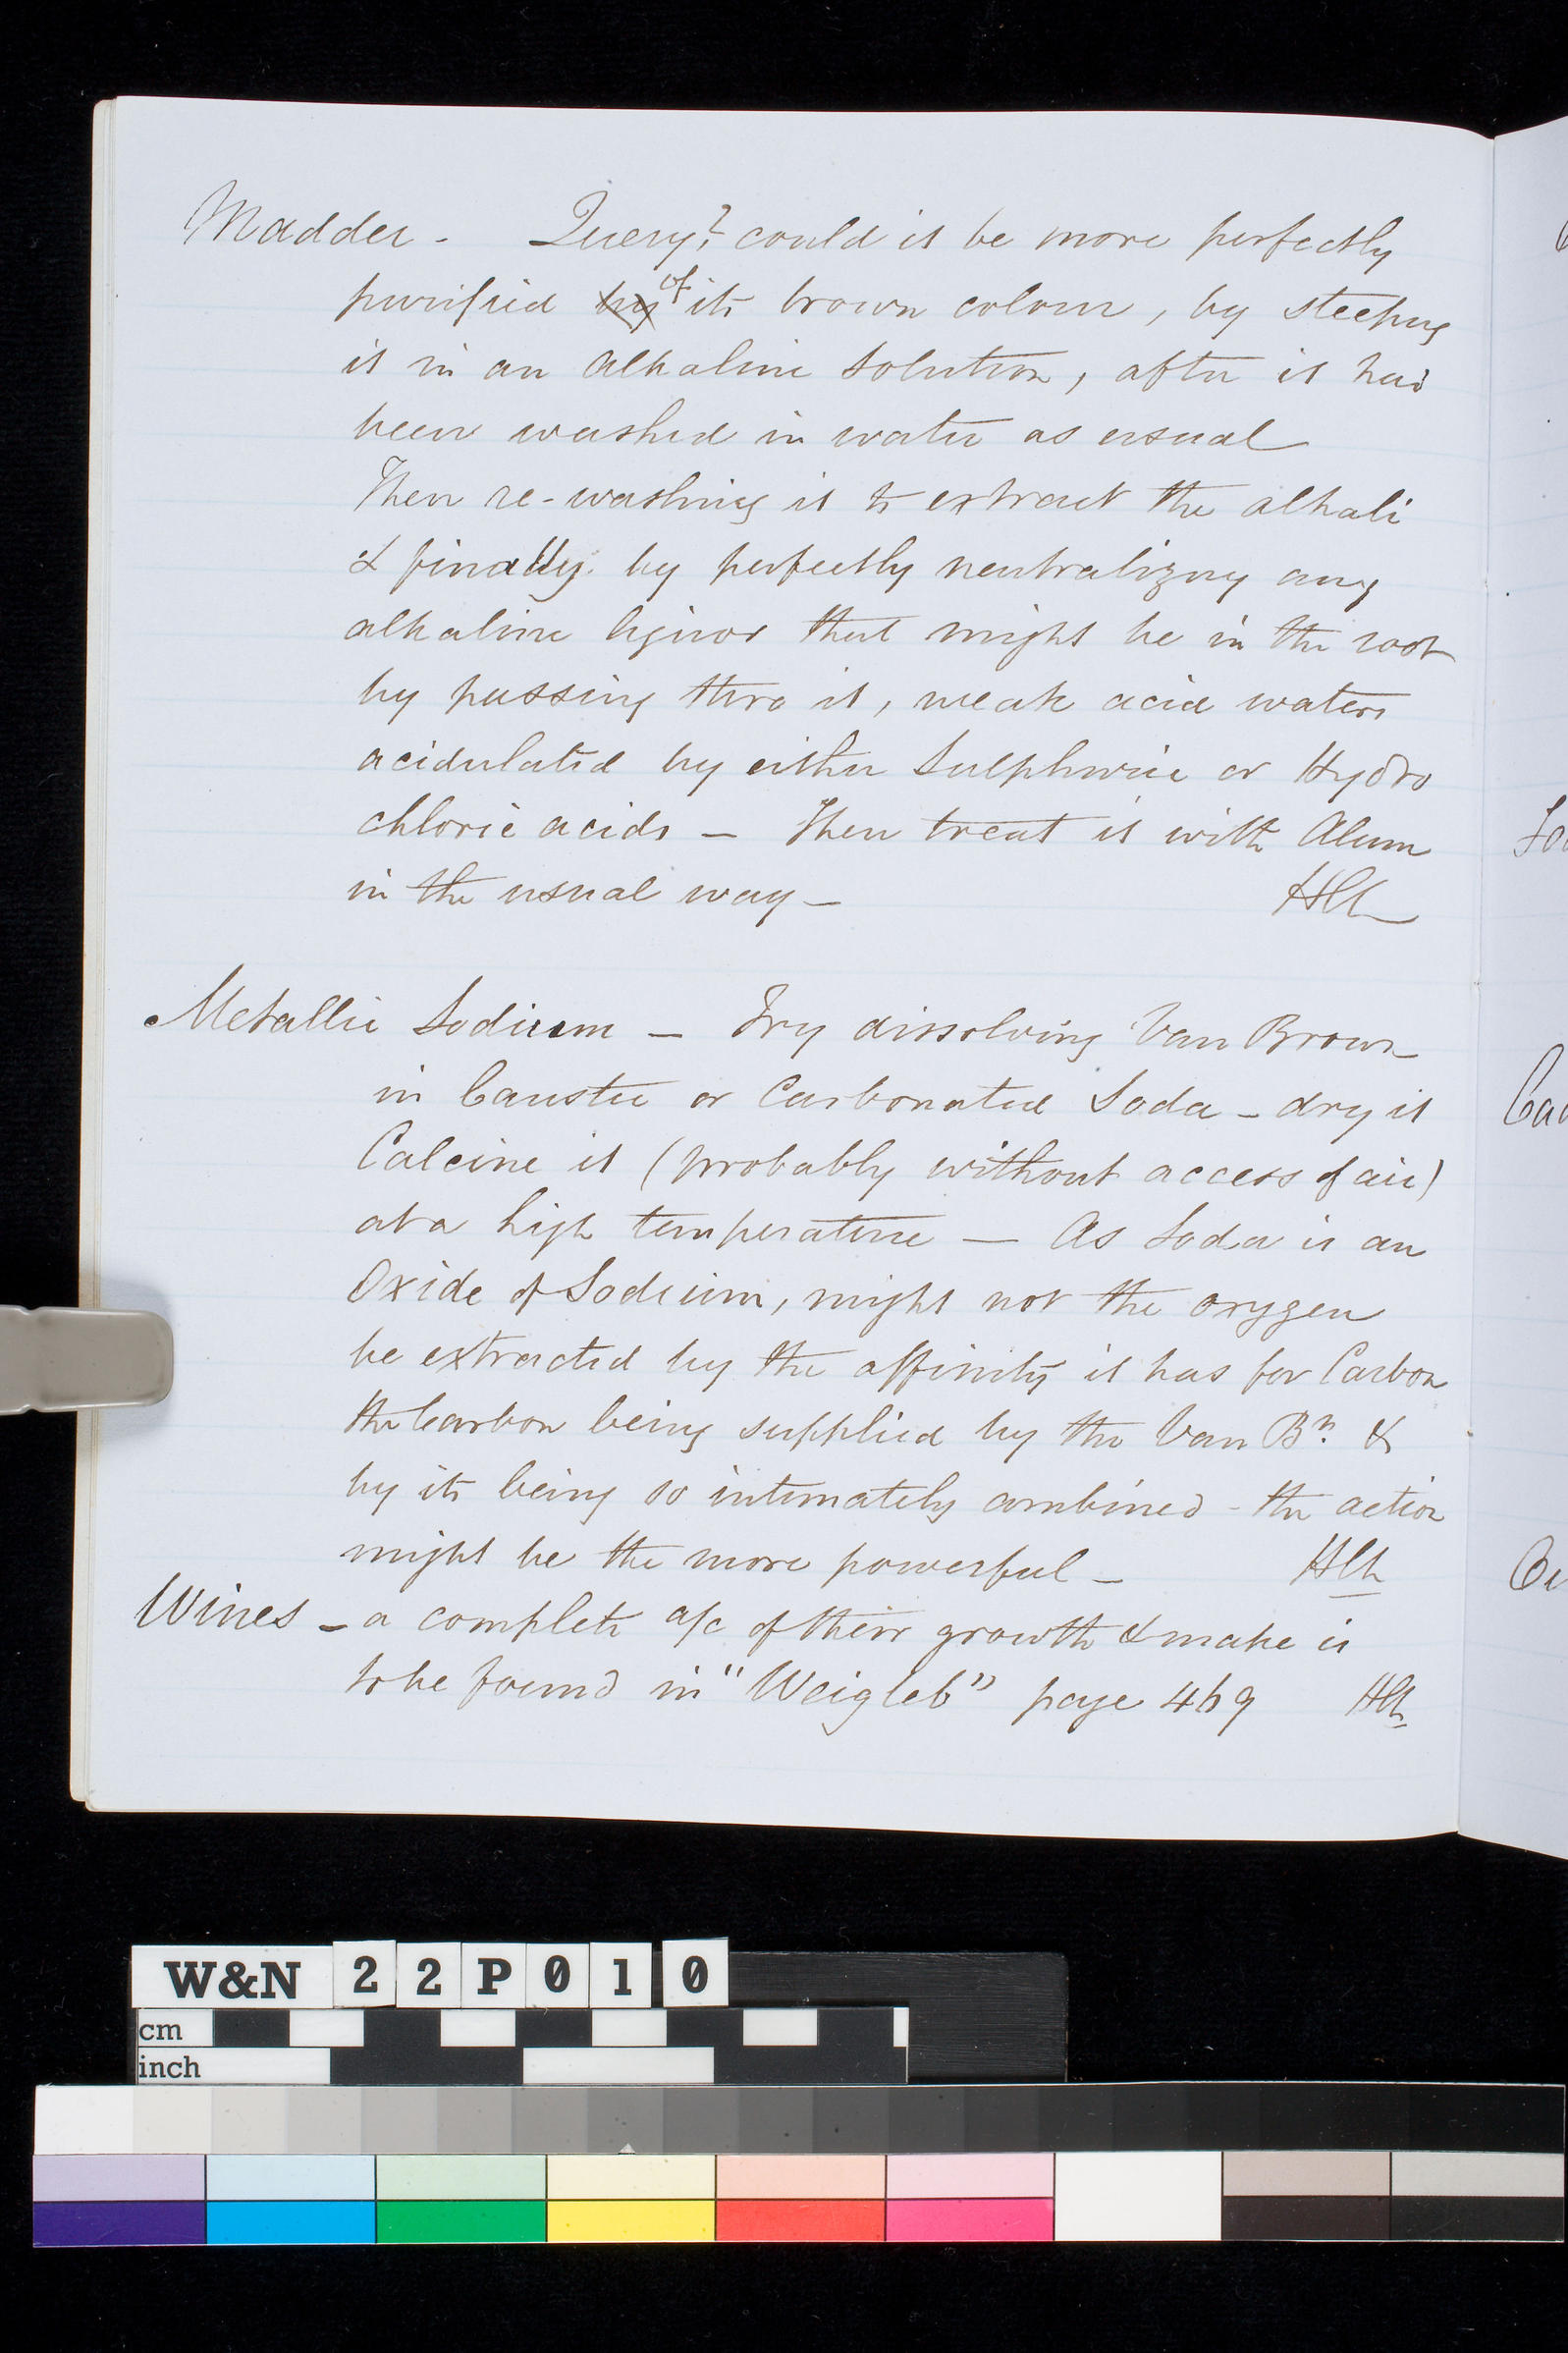 Madder - Query? could it be more perfectly
purified by of its brown colour, by steeping
it in an alkaline solution, after it had
been washed in water as usual
Then re-washing it to extract the alkali
& finally by perfectly neutralizing any
alkaline liquor that might be in the root
by passing thro it, weak acid waters
acidulated by either Sulphuric or Hydro
chloric acids — Then treat it with Alum
in the usual way —
Metallic Sodium — Try dissolving Van Brown
in Caustic or Carbonated Soda - dry it
Calcine it (probably without access of air)
at a high temperature — As Soda is an
Oxide of Sodium, might not the oxygen
be extracted by the affinity it has for Carbon
the Carbon being supplied by the Van Bn. &
by its being so intimately combined - the action
might be the more powerful —
Wines - a complete a/c of their growth & make is
to be found in "Weigleb" page 469
W&N 22P010
cm
inch